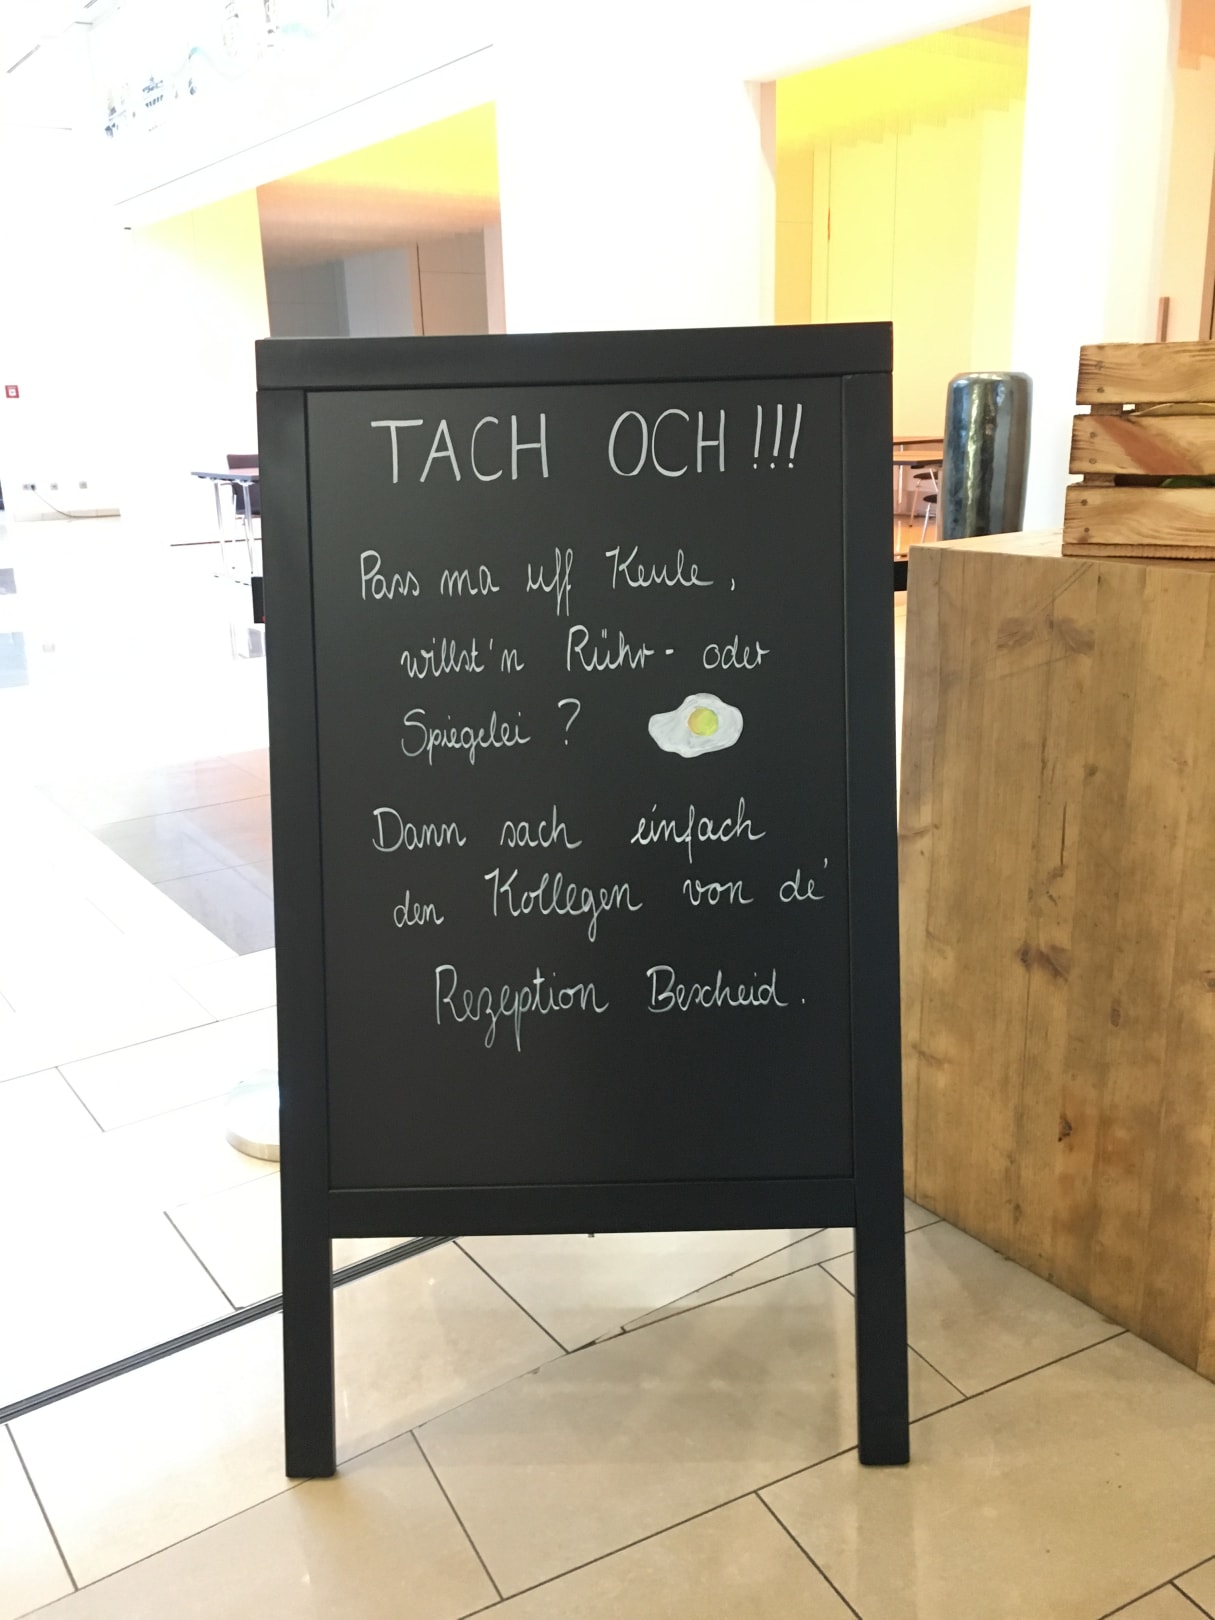 TACH OCH!!!
Pass ma uff Keule,
willst'n Rühr- oder
Spiegelei ?
Dann sach einfach
den Kollegen von de'
Rezeption Bescheid.